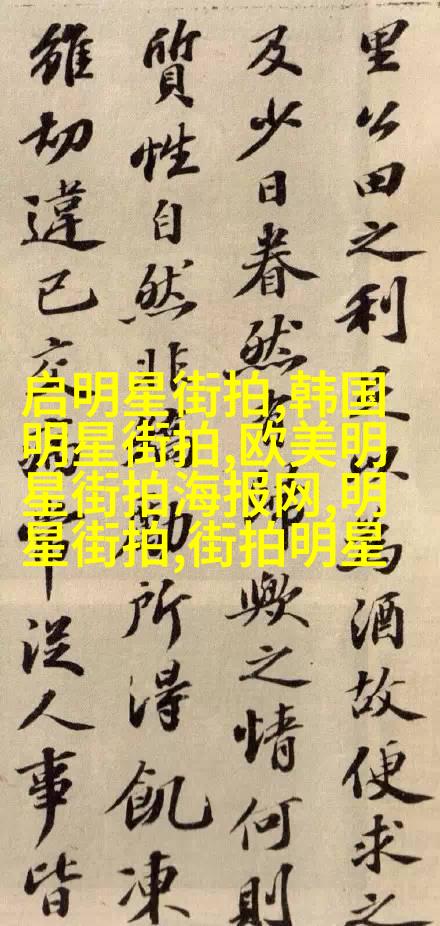 里公田之利足以為酒故便求之
及少日眷然有歸歟之情何則
質性自然非矯勵所得飢凍
雖切違己交病嘗從人事皆
启明星街拍,韩国
明星街拍,欧美明
星街拍海报网,明
星街拍,街拍明星